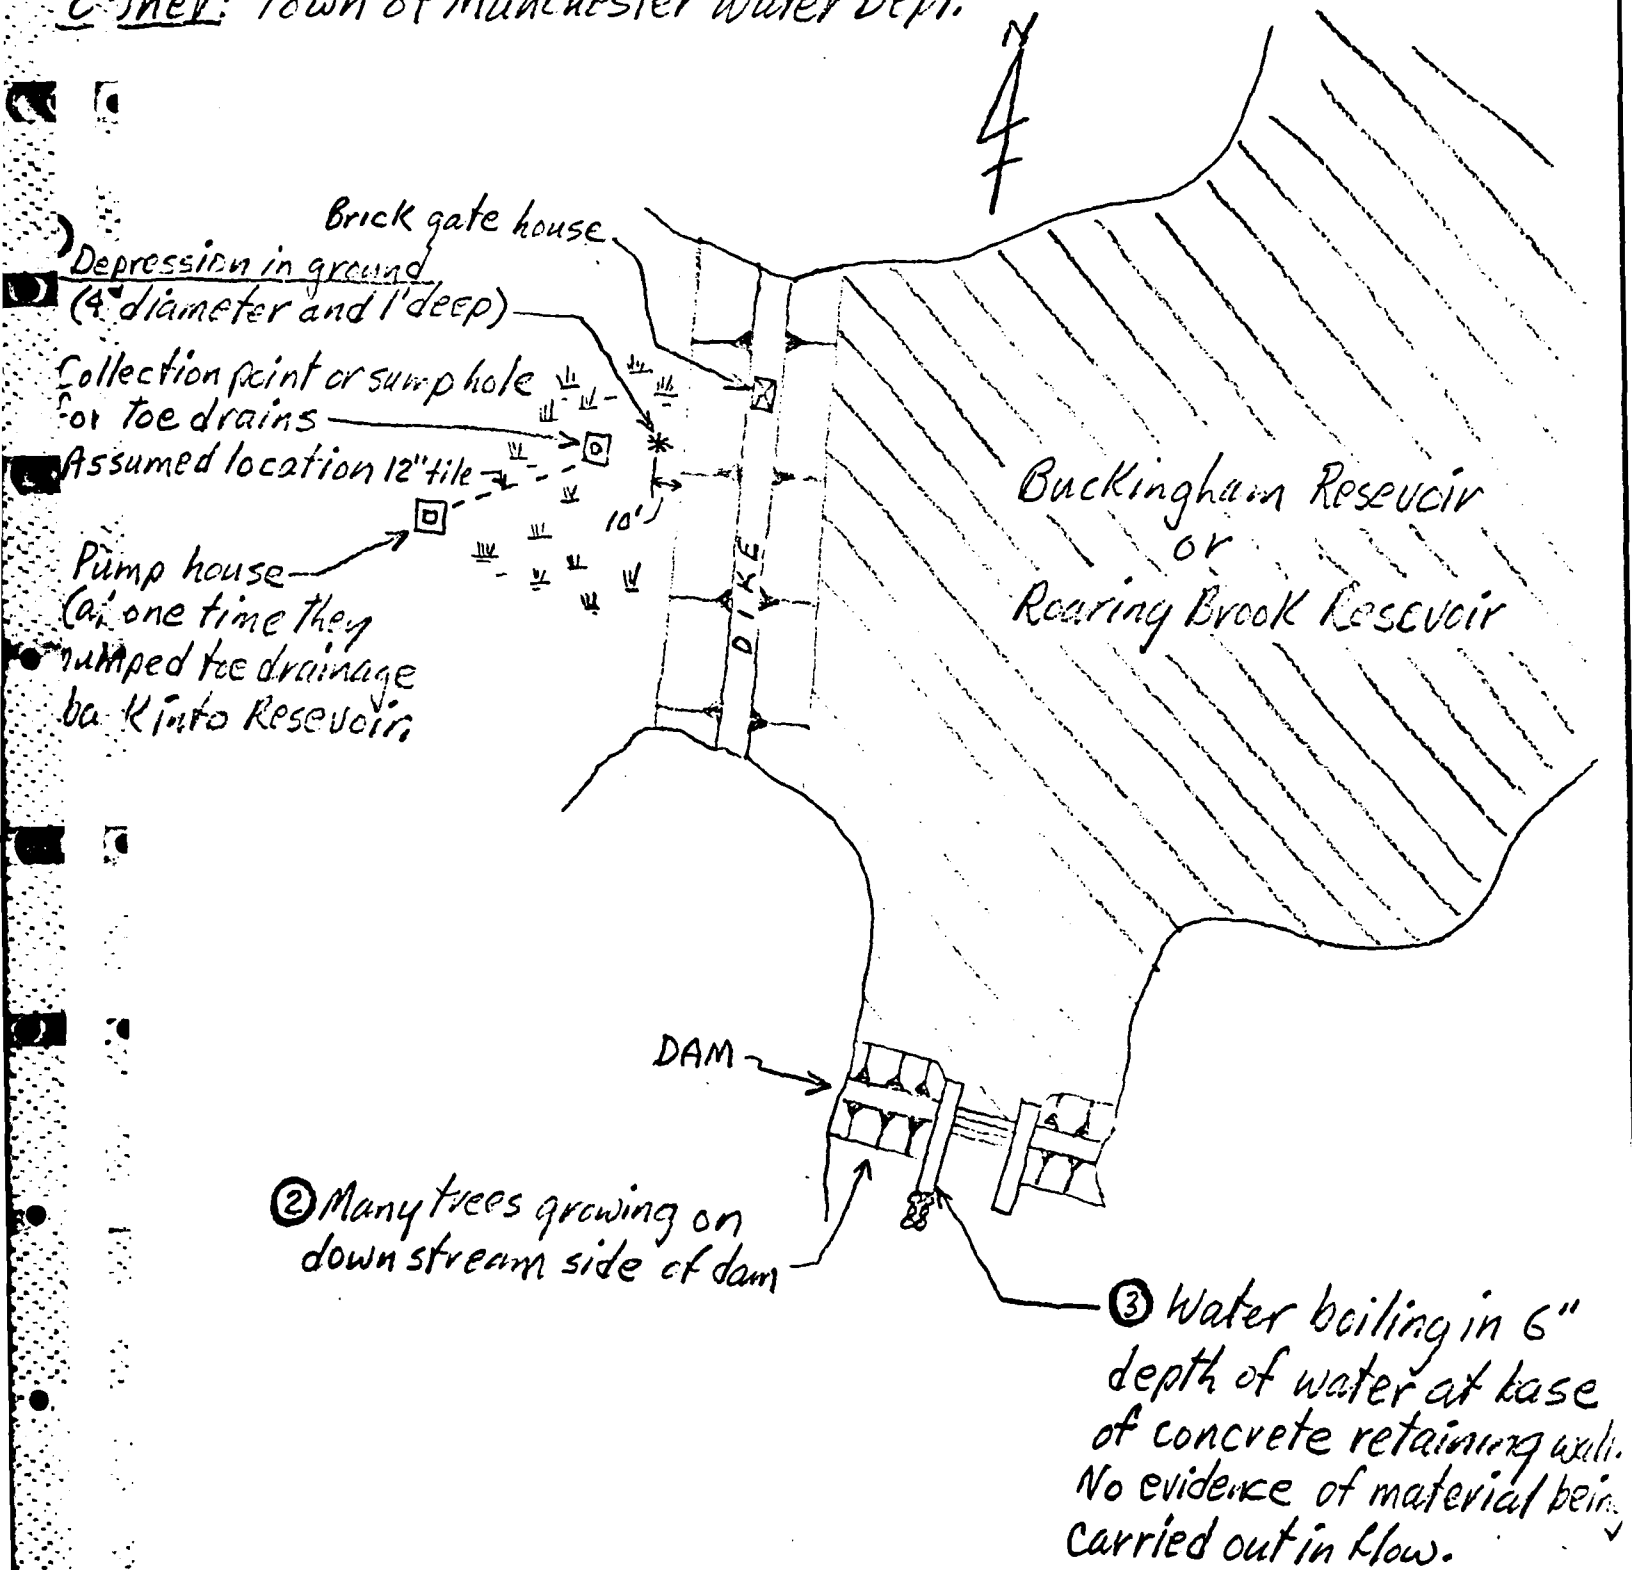 Town of Manchester Water Dept.
N
Brick gate house
Depression in ground
(4' diameter and 1' deep)
Collection point or sump hole
for toe drains
Assumed location 12" tile
10'
Pump house
(at one time they
pumped toe drainage
back into Resevoir.
DIKE
Buckingham Resevoir
or
Roaring Brook Resevoir
DAM
② Many trees growing on
down stream side of dam
③ Water boiling in 6"
depth of water at base
of concrete retaining wall.
No evidence of material being
carried out in flow.